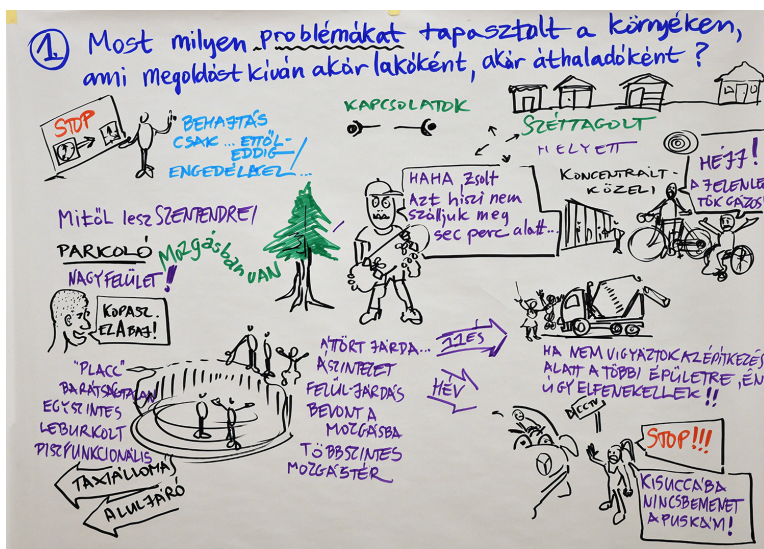 1. Most milyen problémákat tapasztalt a környéken,
ami megoldást kíván akár lakóként, akár áthaladóként?
STOP
BEHAJTÁS
CSAK... ETTŐL-
EDDIG
ENGEDÉLLYEL...
KAPCSOLATOK
SZÉTTAGOLT
HELYETT
KONCENTRÁLT-
KÖZELI
HÉJJ!
A JELENLE
TÓK GÁZOS
HAHA Zsolt
Azt hiszi nem
szálljuk meg
sec perc alatt...
Mitől lesz SZENTENDREI
PARKOLÓ
MOZGÁSBAN VAN
NAGYFELÜLET!
KOPASZ.
EZ A BAJ!
"PLACC"
BARÁTSÁGTALAN
EGYSZINTES
LEBURKOLT
DISZFUNKCIONÁLIS
TAXIÁLLOMÁS
ALULJÁRÓ
ÁTTÖRT JÁRDA...
ÁSZINTEZET
FELÜL-JÁRDÁS
BEVONT A
MOZGÁSBA
TÖBBSZINTES
MOZGÁSTÉR
11ES
HÉV
HA NEM VIGYÁZTOK AZ ÉPÍTKEZÉS
ALATT A TÖBBI ÉPÜLETRE, ÉN
ÚGY ELFENEKELLEK!!
CCTV
STOP!!!
KISUCCÁBA
NINCS BEMENET
APUSKÁM!